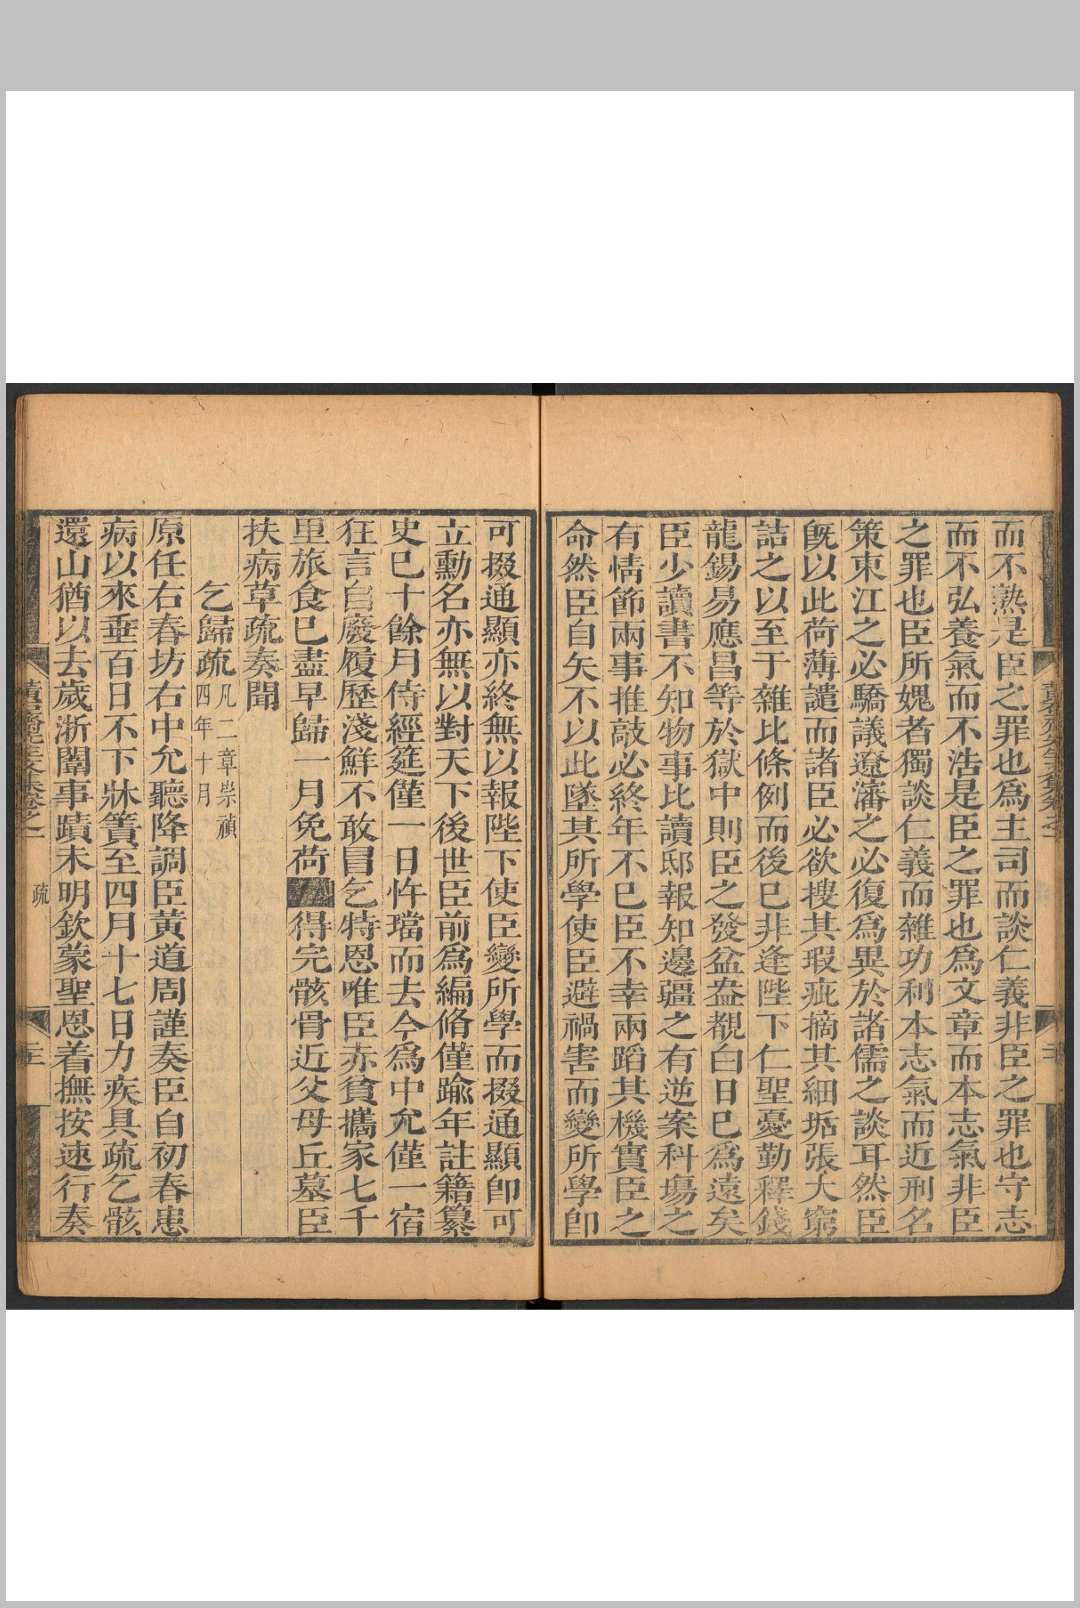 而不熟是臣之罪也為主司而談仁義非臣之罪也守志
而不弘養氣而不浩是臣之罪也為文章而本志氣非臣
之罪也臣所媿者獨談仁義而雜功利本志氣而近刑名
策東江之必驕議遼瀋之必復為異於諸儒之談耳然臣
既以此荷薄譴而諸臣必欲搜其瑕疵摘其細垢張大窮
詰之以至于雜比條例而後已非逢陛下仁聖憂勤釋錢
龍錫易應昌等於獄中則臣之發盆盎覩白日已為遠矣
臣少讀書不知物事比讀邸報知邊疆之有逆案科場之
有情節兩事推敲必終年不已臣不幸兩蹈其機實臣之
命然臣自矢不以此墜其所學使臣避禍害而變所學卽
可掇通顯亦終無以報陛下使臣變所學而掇通顯卽可
立勳名亦無以對天下後世臣前為編脩僅踰年註籍纂
史已十餘月侍經筵僅一日忤璫而去今為中允僅一宿
狂言自廢履歷淺鮮不敢冒乞特恩唯臣赤貧攜家七千
里旅食已盡早歸一月免荷得完骸骨近父母丘墓臣
扶病草疏奏聞
乞歸疏凡二章崇禎四年十月
原任右春坊右中允聽降調臣黃道周謹奏臣自初春患
病以來垂百日不下牀簀至四月十七日力疾具疏乞骸
還山猶以去歲浙闈事蹟未明欽蒙聖恩着撫按速行奏
疏